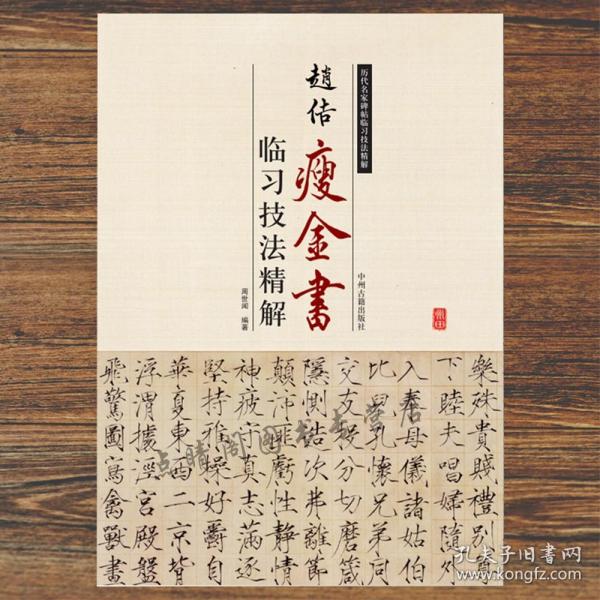 历代名家碑帖临习技法精解
趙佶
瘦金書
临习技法精解
周世闻 编著
中州古籍出版社
樂殊貴賤禮別尊
下睦夫唱婦隨外
入奉母儀諸姑伯
比兒孔懷兄弟同
交友投分切磨箴
隱惻造次弗離節
顛沛匪虧性靜情
神疲守真志滿逐
堅持雅操好爵自
華夏東西二京背
浮渭據涇宮殿盤
飛驚圖寫禽獸畫
孔夫子旧书网
www.kongfz.com